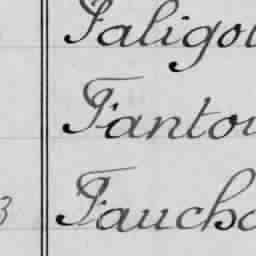 Faligou
Fantou
3 Faucho